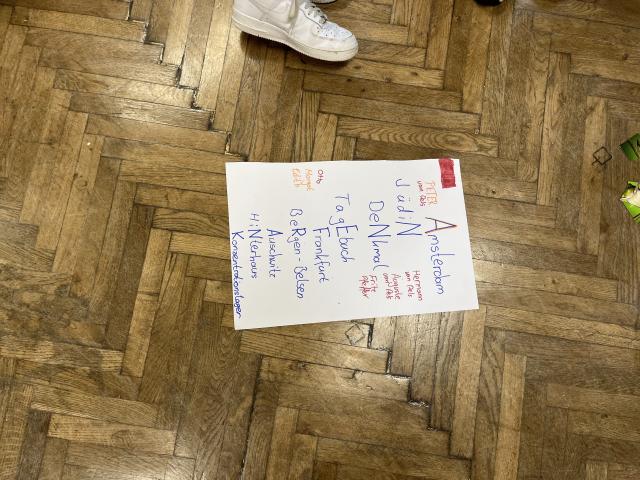 PETER
van Pels
Amsterdam
JüdiN
Hermann
van Pels
Auguste
van Pels
DeNkmal
Fritz
Pfeffer
TagEbuch
Frankfurt
Otto
Margot
Edith
BeRgen-Belsen
Auschwitz
HiNterhaus
Konzentrationslager